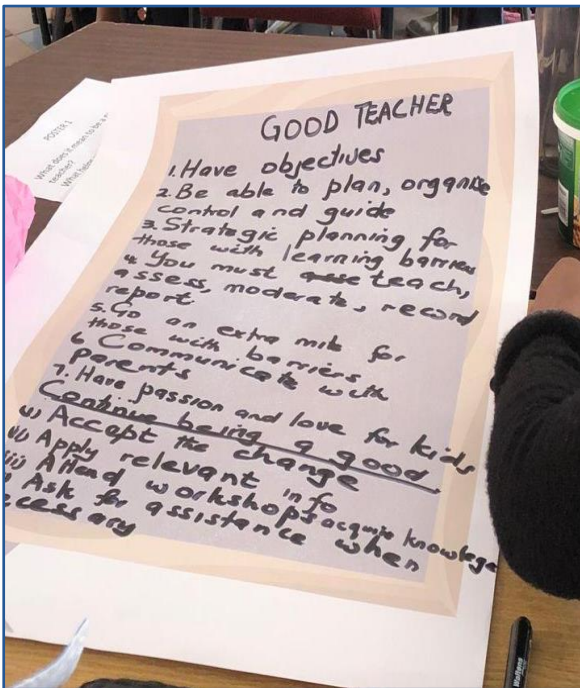 POSTER 1
What does it mean to be a
teacher?
What
GOOD TEACHER
1. Have objectives
2. Be able to plan, organise
control and guide
3. Strategic planning for
those with learning barriers
4. You must teach,
assess, moderate, record
report
5. Go an extra mile for
those with barriers
6. Communicate with
parents
7. Have passion and love for kids
Continue being a good
i) Accept the change
ii) Apply relevant info
iii) Attend workshops acquire knowledge
Ask for assistance when
ecessary